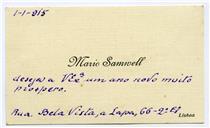 1-1-915
Mario Samwell
deseja a V. Exª um ano novo muito
prospero.
Rua Bela Vista, a Lapa, 66-2º E.
Lisboa